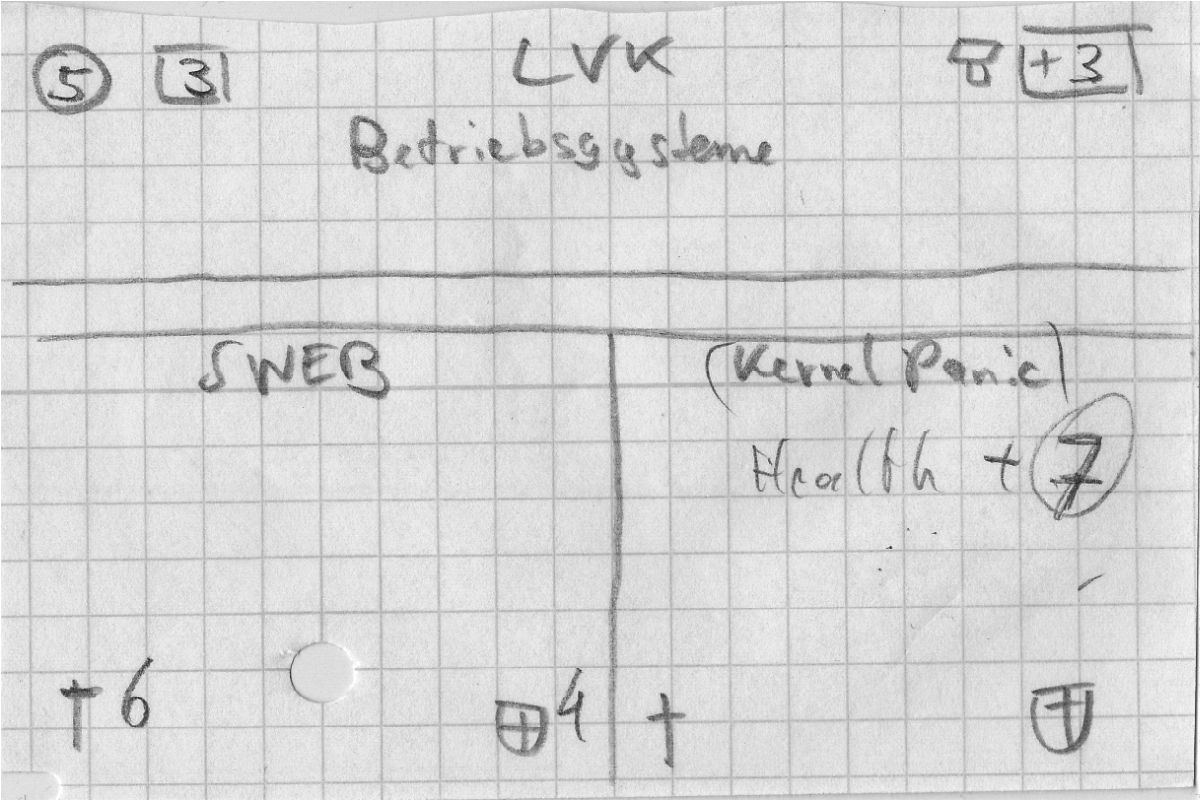 5 3 LVK +3
Betriebsysteme
SWEB (Kernel Panic)
Health + 7
6 4